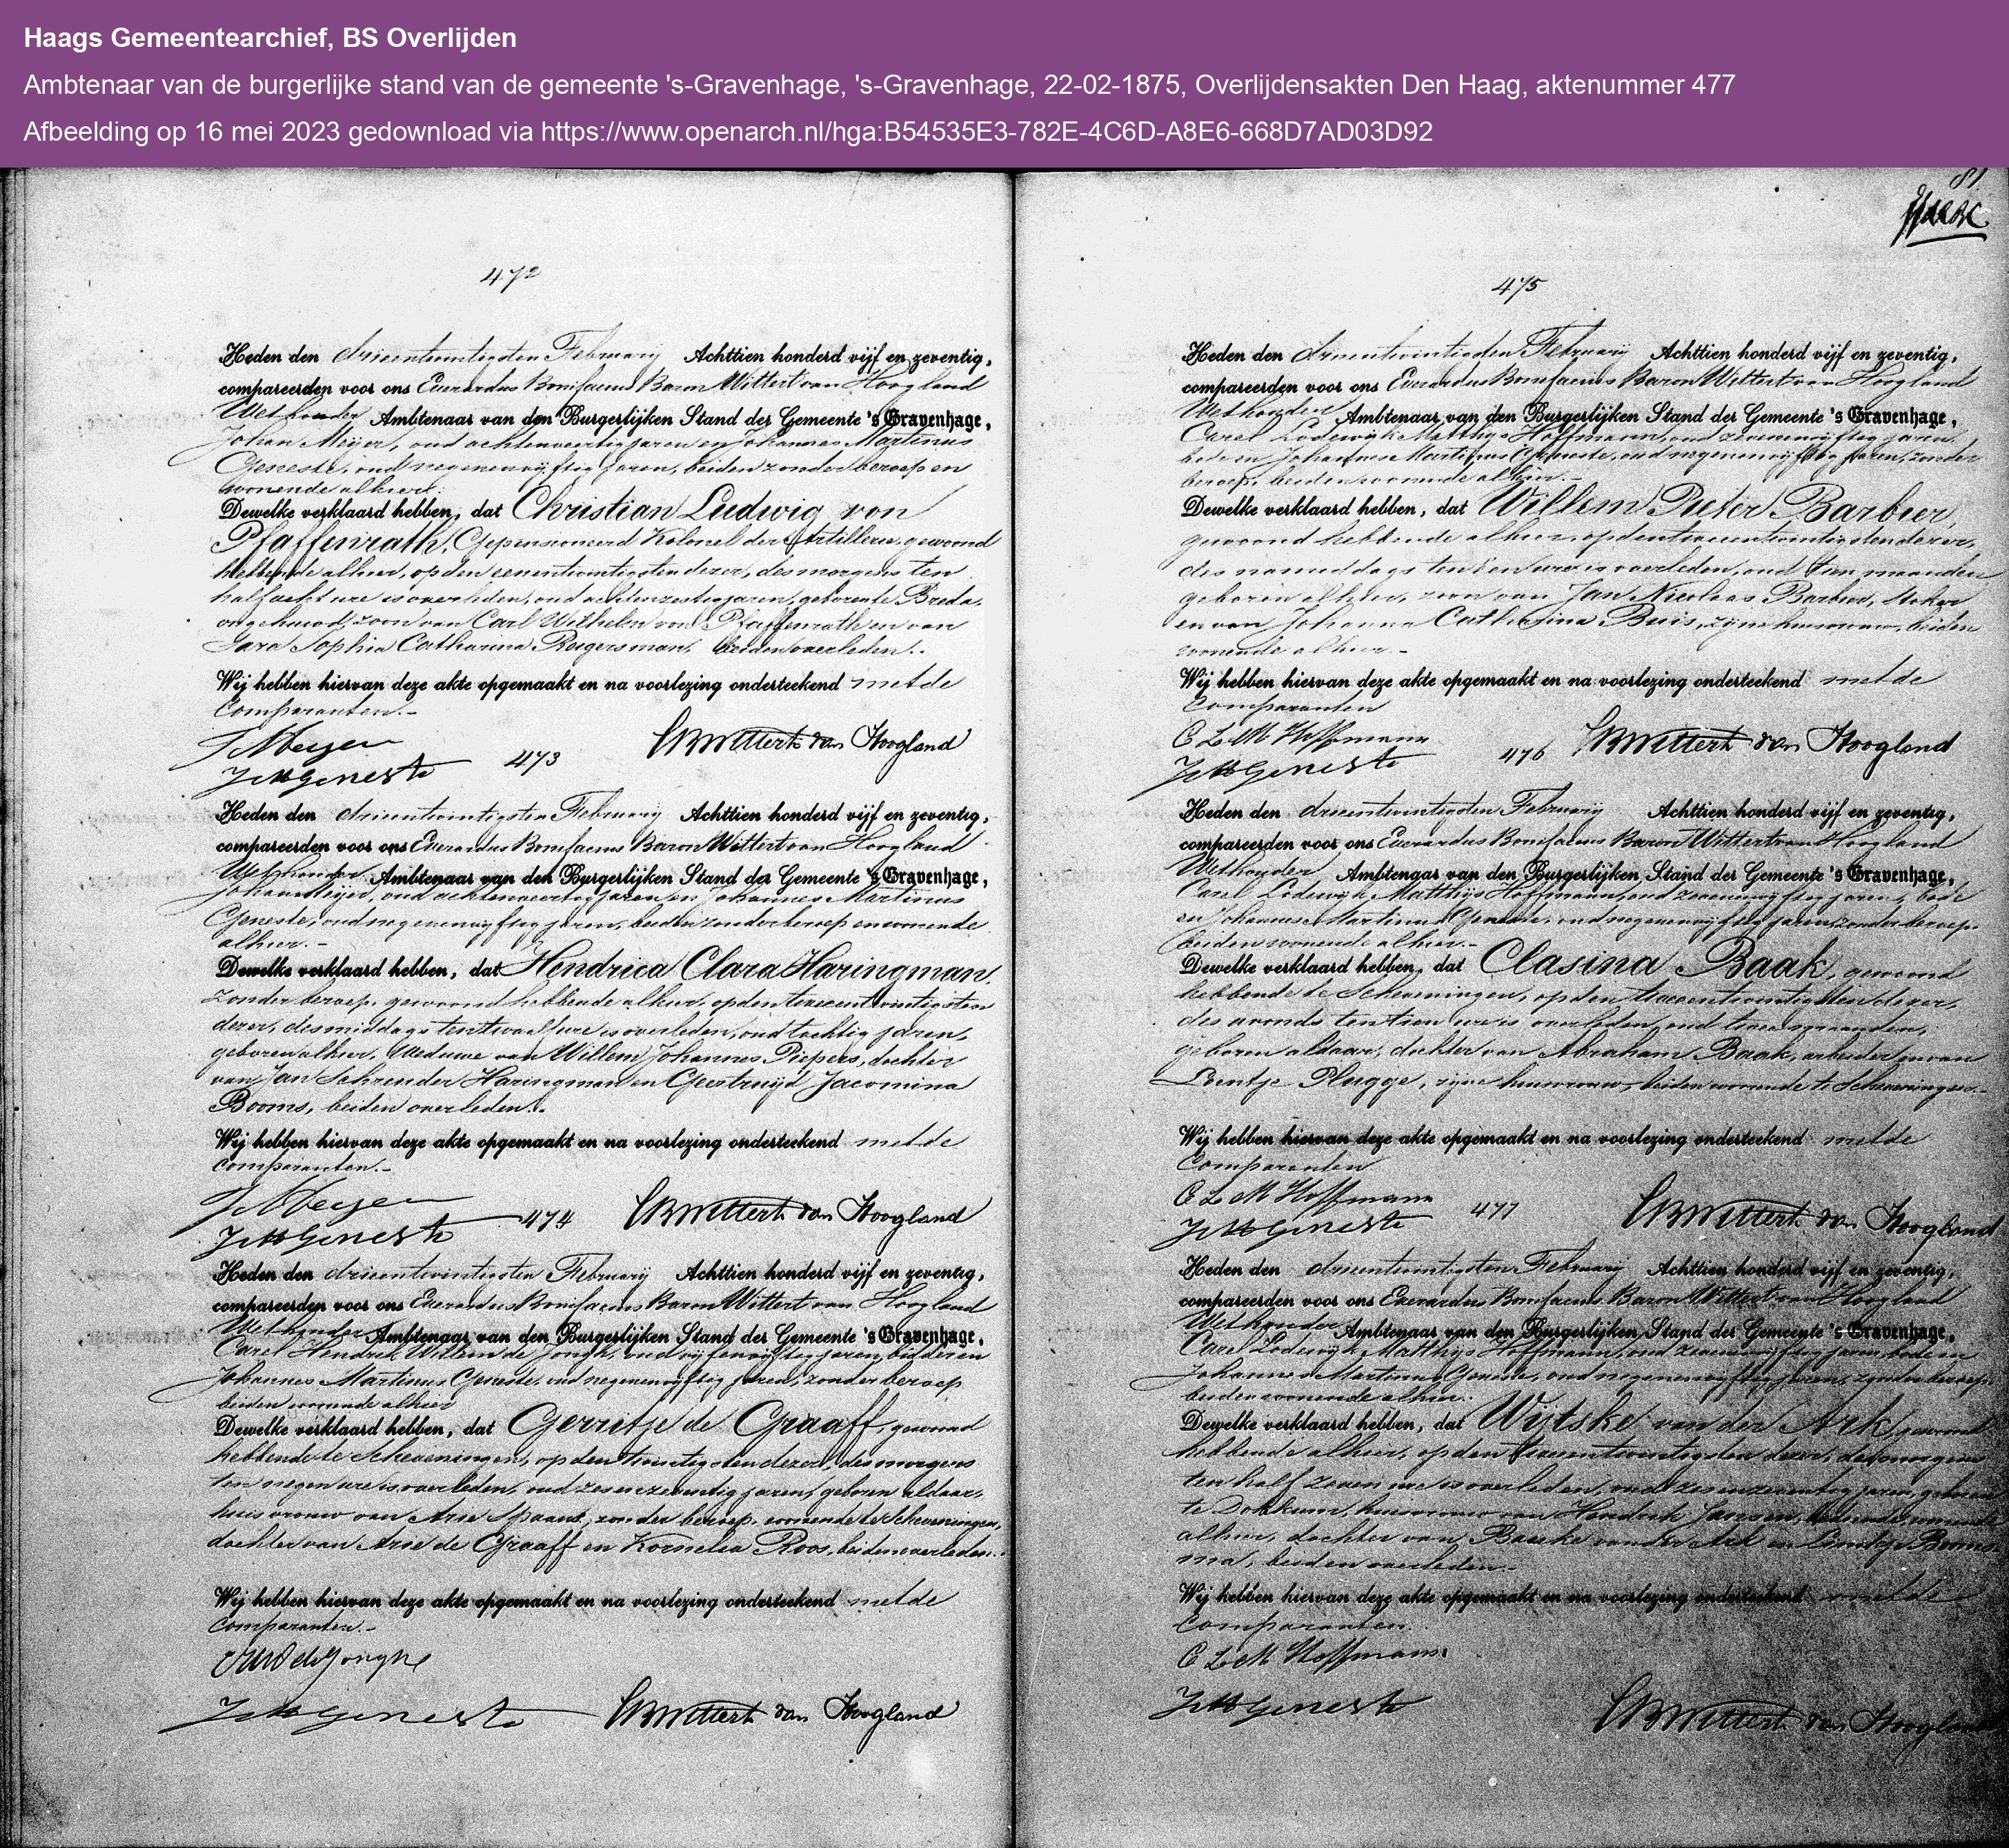 Haags Gemeentearchief, BS Overlijden
Ambtenaar van de burgerlijke stand van de gemeente 's-Gravenhage, 's-Gravenhage, 22-02-1875, Overlijdensakten Den Haag, aktenummer 477
Afbeelding op 16 mei 2023 gedownload via https://www.openarch.nl/hga:B54535E3-782E-4C6D-A8E6-668D7AD03D92
472
Heden den drieentwintigsten Februarij Achttien honderd vijf en zeventig,
compareerden voor ons Everardus Bonifacius Baron Wittert van Hoogland
Wethouder Ambtenaar van den Burgerlijken Stand der Gemeente 's Gravenhage,
Johan Meijer, oud achtenveertig jaren en Johannes Martinus
Geneste, oud negenenvijftig jaren, beiden zonder beroep en
wonende alhier.
Dewelke verklaard hebben, dat Christian Ludwig von
Pfaffenrath, Gepensioneerd Kolonel der Artillerie, gewoond
hebbende alhier, op den eenentwintigsten dezer, des morgens ten
half acht ure is overleden, oud achtenzestig jaren, geboren te Breda,
ongehuwd, zoon van Carl Wilhelm von Pfaffenrath en van
Sara Sophia Catharina Reigersman, beiden overleden.
Wij hebben hiervan deze akte opgemaakt en na voorlezing onderteekend met de
Comparanten.
J Meijer
JMGeneste
EBWittert van Hoogland
473
Heden den drieentwintigsten Februarij Achttien honderd vijf en zeventig,
compareerden voor ons Everardus Bonifacius Baron Wittert van Hoogland
Wethouder Ambtenaar van den Burgerlijken Stand der Gemeente 's Gravenhage,
Johan Meijer, oud achtenveertig jaren en Johannes Martinus
Geneste, oud negenenvijftig jaren, beiden zonder beroep en wonende
alhier.
Dewelke verklaard hebben, dat Hendrica Clara Haringman,
zonder beroep, gewoond hebbende alhier, op den tweeentwintigsten
dezer, des middags ten twaalf ure is overleden, oud tachtig jaren,
geboren alhier, Weduwe van Willem Johannes Piepers, dochter
van Jan Schreuder Haringman en Geertruijd Jacomina
Booms, beiden overleden.
Wij hebben hiervan deze akte opgemaakt en na voorlezing onderteekend met de
comparanten.
J Meijer
JMGeneste
EBWittert van Hoogland
474
Heden den drieentwintigsten Februarij Achttien honderd vijf en zeventig,
compareerden voor ons Everardus Bonifacius Baron Wittert van Hoogland
Wethouder Ambtenaar van den Burgerlijken Stand der Gemeente 's Gravenhage,
Carel Hendrik Willem de Jongh, oud vijfenvijftig jaren, bidder en
Johannes Martinus Geneste, oud negenenvijftig jaren, zonder beroep
beiden wonende alhier
Dewelke verklaard hebben, dat Gerritje de Graaff, gewoond
hebbende te Scheveningen, op den twintigsten dezer, des morgens
ten negen ure is overleden, oud zesenzeventig jaren, geboren aldaar,
huisvrouw van Arie Spaans, zonder beroep, wonende te Scheveningen,
dochter van Arie de Graaff en Kornelia Roos, beiden overleden.
Wij hebben hiervan deze akte opgemaakt en na voorlezing onderteekend met de
Comparanten.
CHWdeJongh
JMGeneste
EBWittert van Hoogland
81
475
Heden den drieentwintigsten Februarij Achttien honderd vijf en zeventig,
compareerden voor ons Everardus Bonifacius Baron Wittert van Hoogland
Wethouder Ambtenaar van den Burgerlijken Stand der Gemeente 's Gravenhage,
Carel Lodewijk Matthijs Hoffmann, oud zevenenvijftig jaren,
bode en Johannes Martinus Geneste, oud negenenvijftig jaren, zonder
beroep, beiden wonende alhier.
Dewelke verklaard hebben, dat Willem Pieter Barbier,
gewoond hebbende alhier, op den tweeentwintigsten dezer,
des namiddags ten een ure is overleden, oud tien maanden
geboren alhier, zoon van Jan Nicolaas Barbier, stoker
en van Johanna Catharina Buis, zijne huisvrouw, beiden
wonende alhier.
Wij hebben hiervan deze akte opgemaakt en na voorlezing onderteekend met de
Comparanten
C L M Hoffmann
JMGeneste
EBWittert van Hoogland
476
Heden den drieentwintigsten Februarij Achttien honderd vijf en zeventig,
compareerden voor ons Everardus Bonifacius Baron Wittert van Hoogland
Wethouder Ambtenaar van den Burgerlijken Stand der Gemeente 's Gravenhage,
Carel Lodewijk Matthijs Hoffmann, oud zevenenvijftig jaren, bode
en Johannes Martinus Geneste, oud negenenvijftig jaren, zonder beroep,
beiden wonende alhier.
Dewelke verklaard hebben, dat Clasina Baak, gewoond
hebbende te Scheveningen, op den tweeentwintigsten dezer,
des avonds ten tien ure is overleden, oud twee maanden,
geboren aldaar, dochter van Abraham Baak, arbeider en van
Leentje Plugge, zijne huisvrouw, beiden wonende te Scheveningen.
Wij hebben hiervan deze akte opgemaakt en na voorlezing onderteekend met de
Comparanten
C L M Hoffmann
JMGeneste
EBWittert van Hoogland
477
Heden den drieentwintigsten Februarij Achttien honderd vijf en zeventig,
compareerden voor ons Everardus Bonifacius Baron Wittert van Hoogland
Wethouder Ambtenaar van den Burgerlijken Stand der Gemeente 's Gravenhage,
Carel Lodewijk Matthijs Hoffmann, oud zevenenvijftig jaren, bode en
Johannes Martinus Geneste, oud negenenvijftig jaren, zonder beroep,
beiden wonende alhier.
Dewelke verklaard hebben, dat Wijtske van der Ark, gewoond
hebbende alhier, op den tweeentwintigsten dezer, des morgens
ten half zeven ure is overleden, oud zesenzeventig jaren, geboren
te Dokkum, huisvrouw van Hendrik Jansen, wonende
alhier, dochter van Baucke van der Ark en
ma, beiden overleden.
Wij hebben hiervan deze akte opgemaakt en na voorlezing onderteekend met de
Comparanten.
C L M Hoffmann
JMGeneste
EBWittert van Hoogland